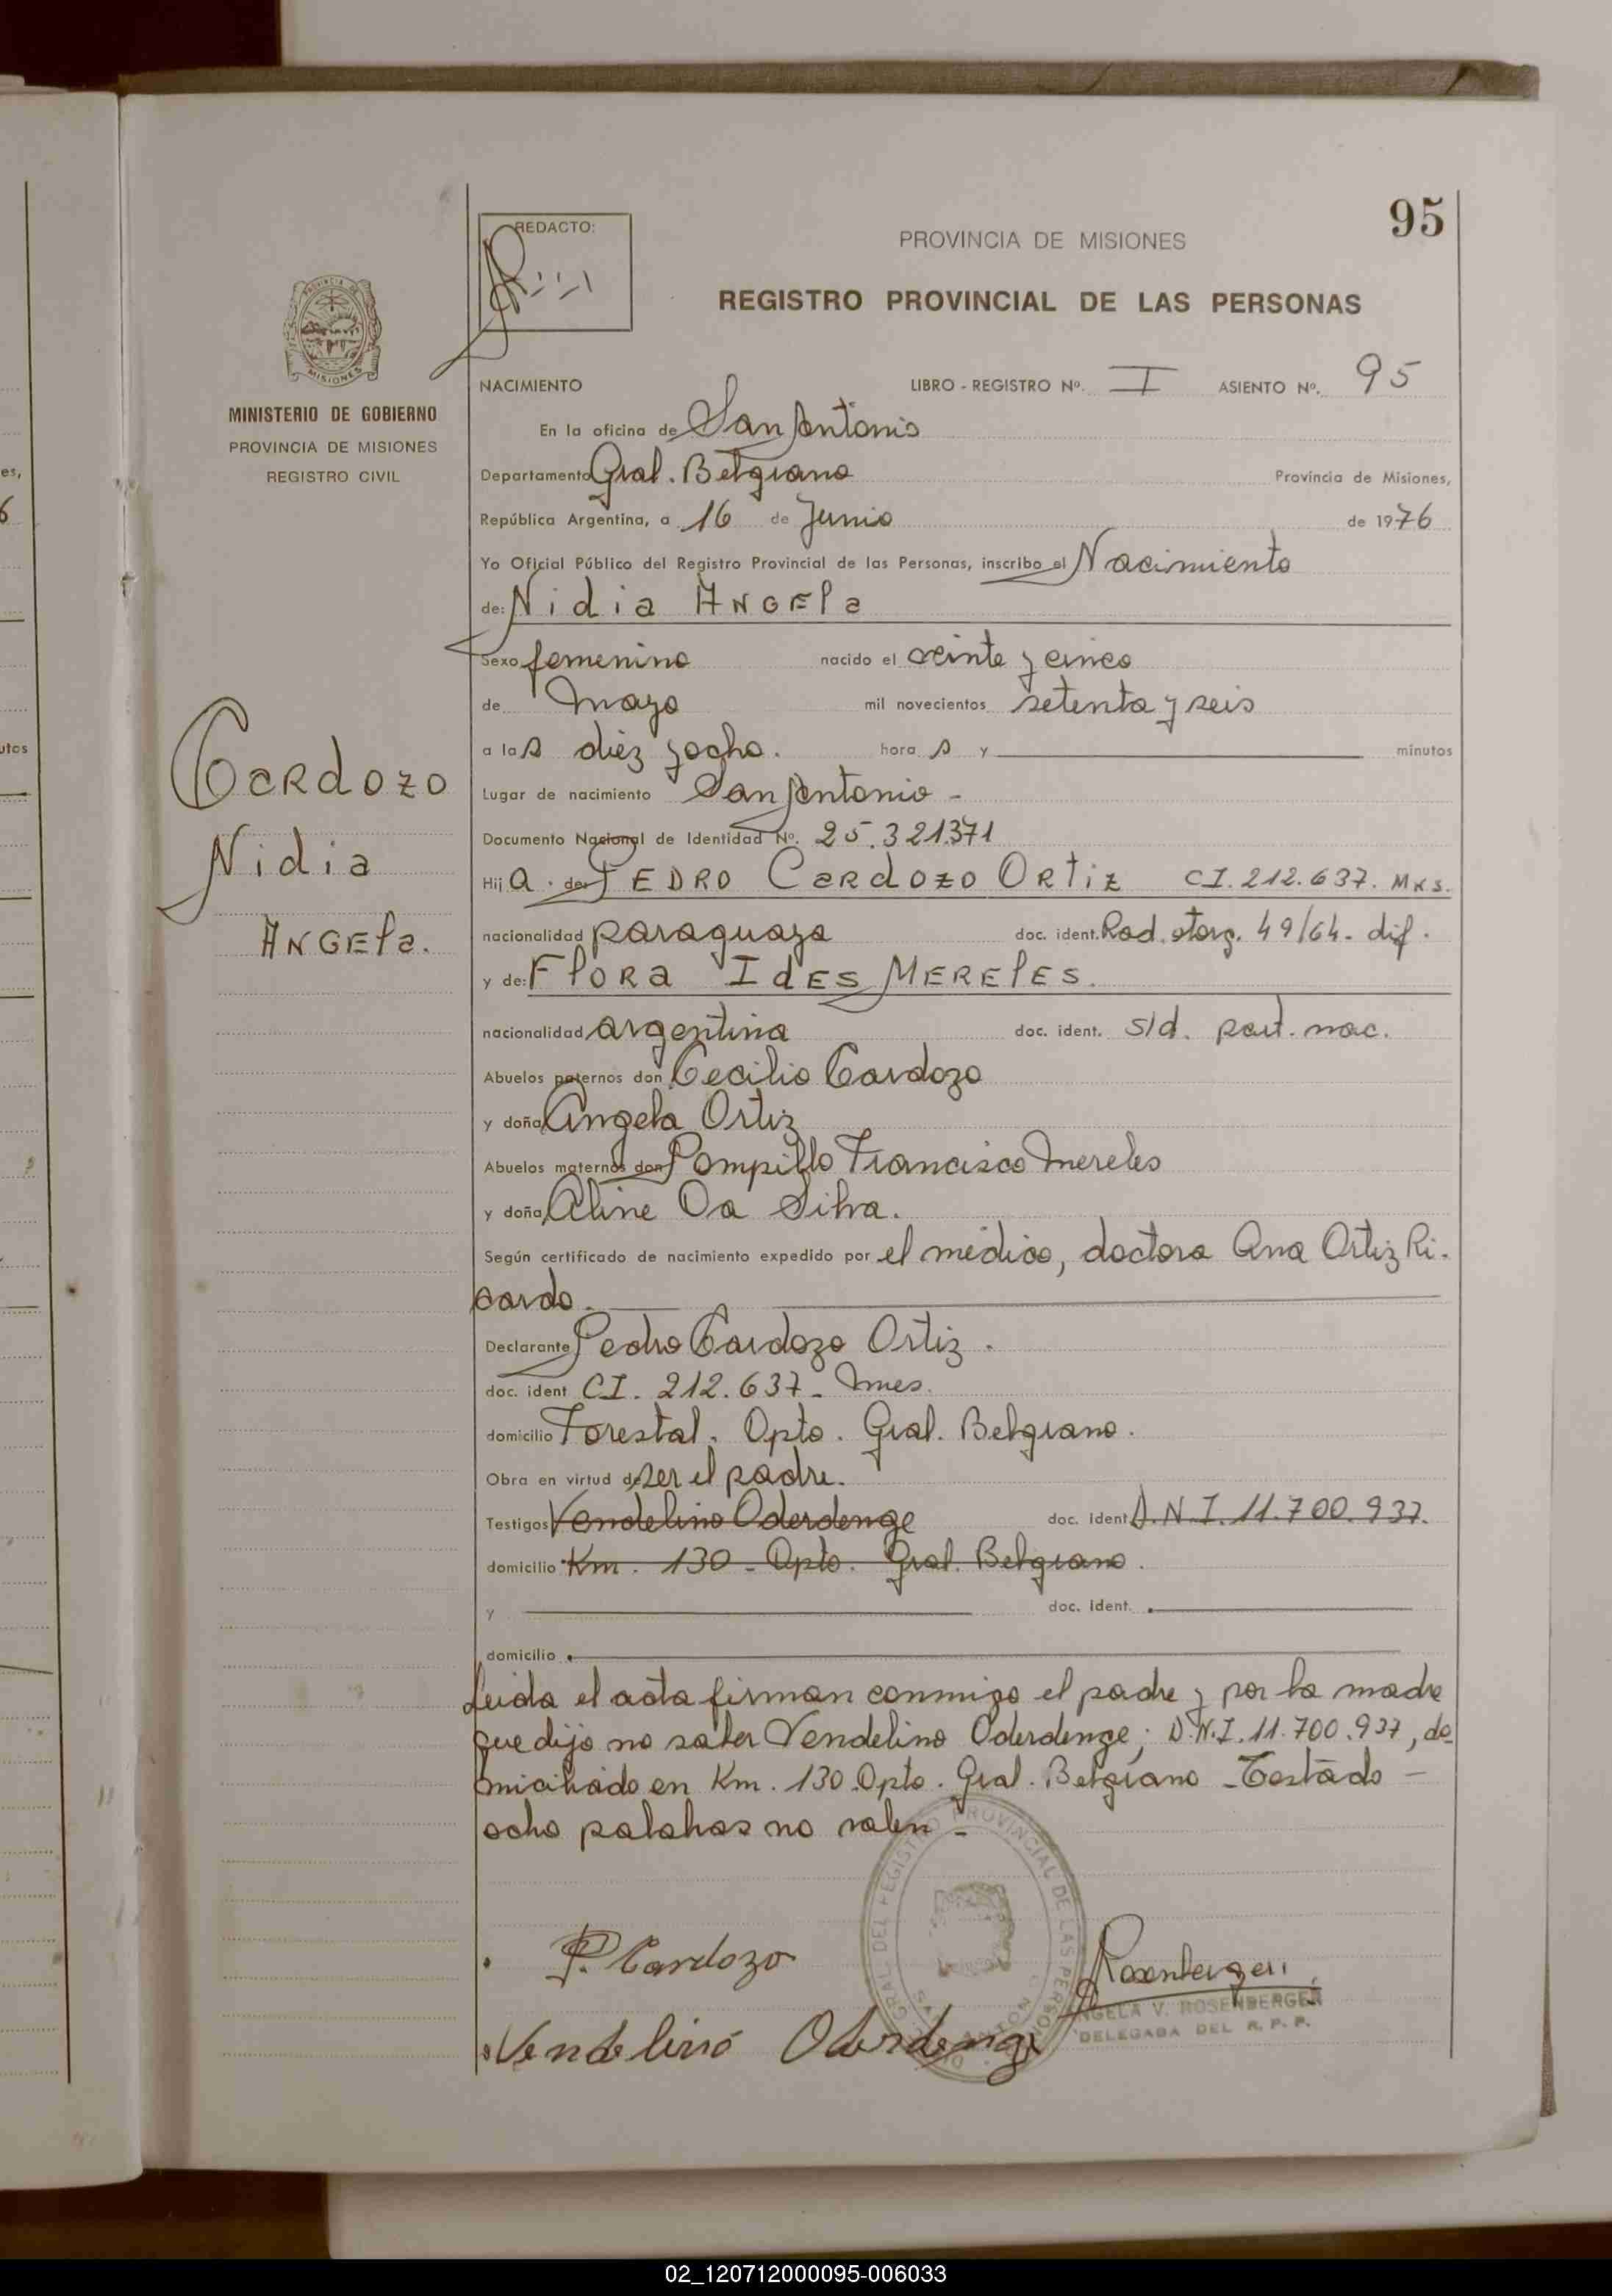 95
REDACTO:
PROVINCIA DE MISIONES
REGISTRO PROVINCIAL DE LAS PERSONAS
MINISTERIO DE GOBIERNO
PROVINCIA DE MISIONES
REGISTRO CIVIL
NACIMIENTO LIBRO - REGISTRO Nº. I ASIENTO Nº. 95
En la oficina de San Antonio
Departamento Gral. Belgrano Provincia de Misiones,
República Argentina, a 16 de Junio de 1976
Yo Oficial Público del Registro Provincial de las Personas, inscribo el Nacimiento
de: Nidia ANGEla
Sexo femenino nacido el veinte y cinco
de Mayo mil novecientos setenta y seis
a las diez y ocho. hora s y minutos
Lugar de nacimiento San Antonio -
Documento Nacional de Identidad Nº. 25.321.371
Hija. de: PEDRO Cardozo ORtiz CI. 212.637. Mns.
nacionalidad paraguaya doc. ident. Rad. otorg. 49/64. dif.
y de: FloRa IdES MERElES.
nacionalidad argentina doc. ident. s/d. part. nac.
Abuelos paternos don Cecilio Cardozo
y doña Angela Ortiz
Abuelos maternos don Pompillo Francisco Mereles
y doña Aline Da Silva.
Según certificado de nacimiento expedido por el médico, doctora Ana Ortiz Ri-
cardo.
Declarante Pedro Cardozo Ortiz.
doc. ident CI. 212.637. Mnes.
domicilio Forestal. Dpto. Gral. Belgrano.
Obra en virtud de ser el padre.
Testigos Vendelino Oderdenge doc. ident D.N.I. 11.700.937.
domicilio Km. 130 - Dpto. Gral. Belgrano.
y doc. ident.
domicilio
Leida el acta firman conmigo el padre y por la madre
que dijo no saber Vendelino Oderdenge; D.N.I. 11.700.937, do-
miciliado en Km. 130 Dpto. Gral. Belgrano - Testado -
ocho palabras no valen -
CaRdozo
Nidia
ANGEla.
P. Cardozo
Rosenberger
ANGELA V. ROSENBERGER
DELEGADA DEL R. P. P.
Vendelino Oderdenge
02_120712000095-006033